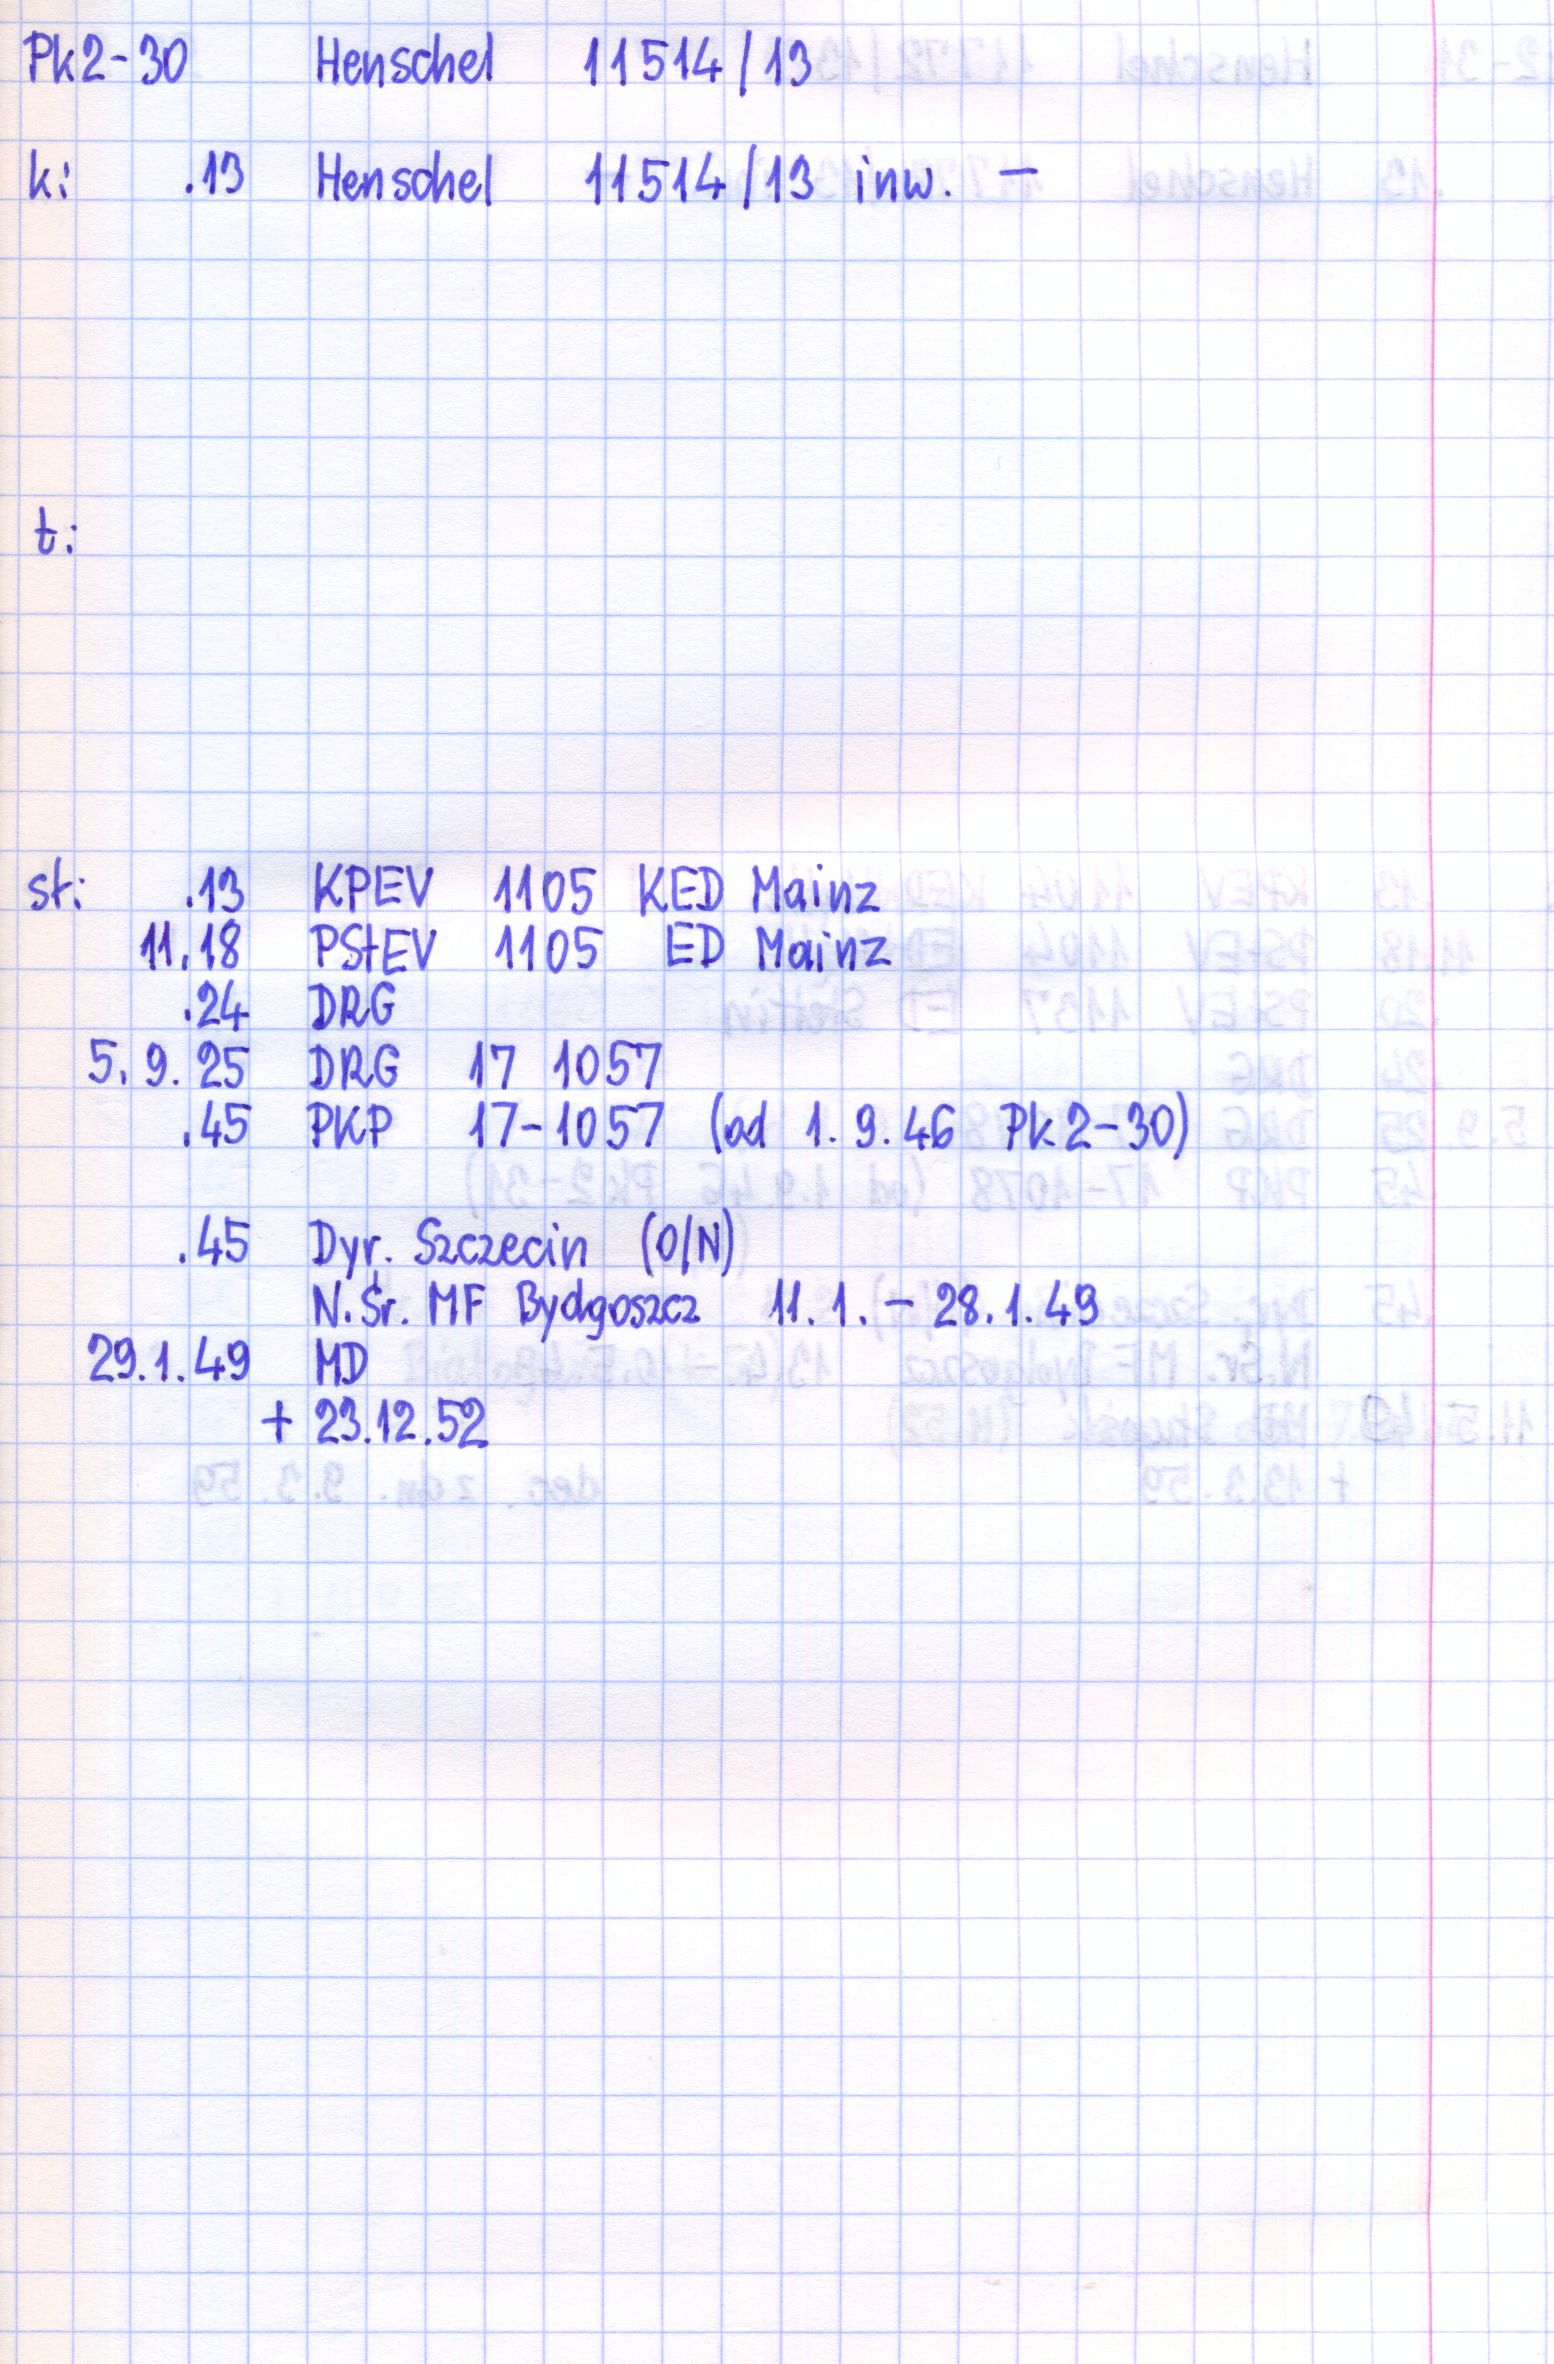 Pk2-30 Henschel 11514/13
k: .13 Henschel 11514/13 inw. –
t:
st: .13 KPEV 1105 KED Mainz
11.18 PStEV 1105 ED Mainz
.24 DRG
5.9.25 DRG 17 1057
.45 PKP 17-1057 (od 1.9.46 Pk2-30)
.45 Dyr. Szczecin (O/N)
N.Śr. MF Bydgoszcz 11.1. – 28.1.49
29.1.49 MD
+ 23.12.52